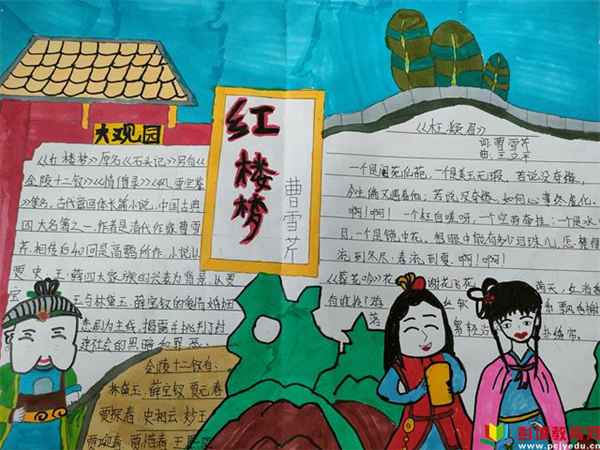 大观园
红楼梦
曹雪芹
《红楼梦》原名《石头记》另名《
金陵十二钗》《情僧录》《风
等名,古代章回体长篇小说,中国古典
四大名著之一,作者是清代作家曹雪
芹,相传后40回是高鹗所作,小说以
贾 史 王 薛四大家族的兴衰为背景,以贾
宝 玉与林黛玉、薛宝钗的爱情婚姻
悲剧为主线,揭露
建社会的黑暗和罪恶。
金陵十二钗有、
林黛玉、薛宝钗 贾元春
贾探春 史湘云 妙玉
贾迎春、贾惜春 王熙凤
《枉凝眉》
词:曹雪芹
曲:王立平
一个是阆苑仙花,一个是美玉无瑕。若说没奇缘,
今生偏又遇着他;若说没奇缘,如何心事终虚化。
啊!啊!一个枉自嗟呀,一个空劳牵挂;一个是水中
月,一个是镜中花。想眼中能有多少泪珠儿,怎禁得
流到冬尽,春流到夏,啊!啊!
《葬花吟》花 谢花飞花 满天,红消香
自谁怜!游 丝软 系飘
落 絮轻沾 扑绣帘。
彭城教育网
www.pcjyedu.cn